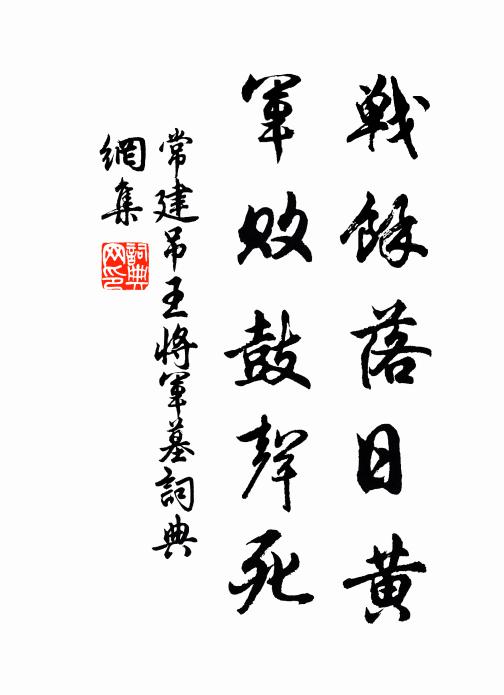 戰餘落日黄
軍敗鼓聲死
常建吊王將軍墓詞典
網集
詞典
网印